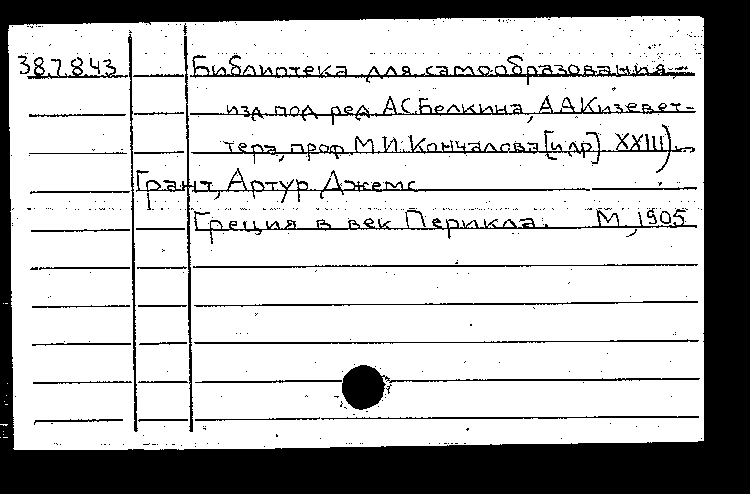 38.7.843 Библиотека для самообразования,
изд. под ред. А.С.Белкина, А.А.Кизевет-
тера, проф. М.И.Кончалова [и др] XXIII)
Грант, Артур Джемс
Греция в век Перикла. М., 1905